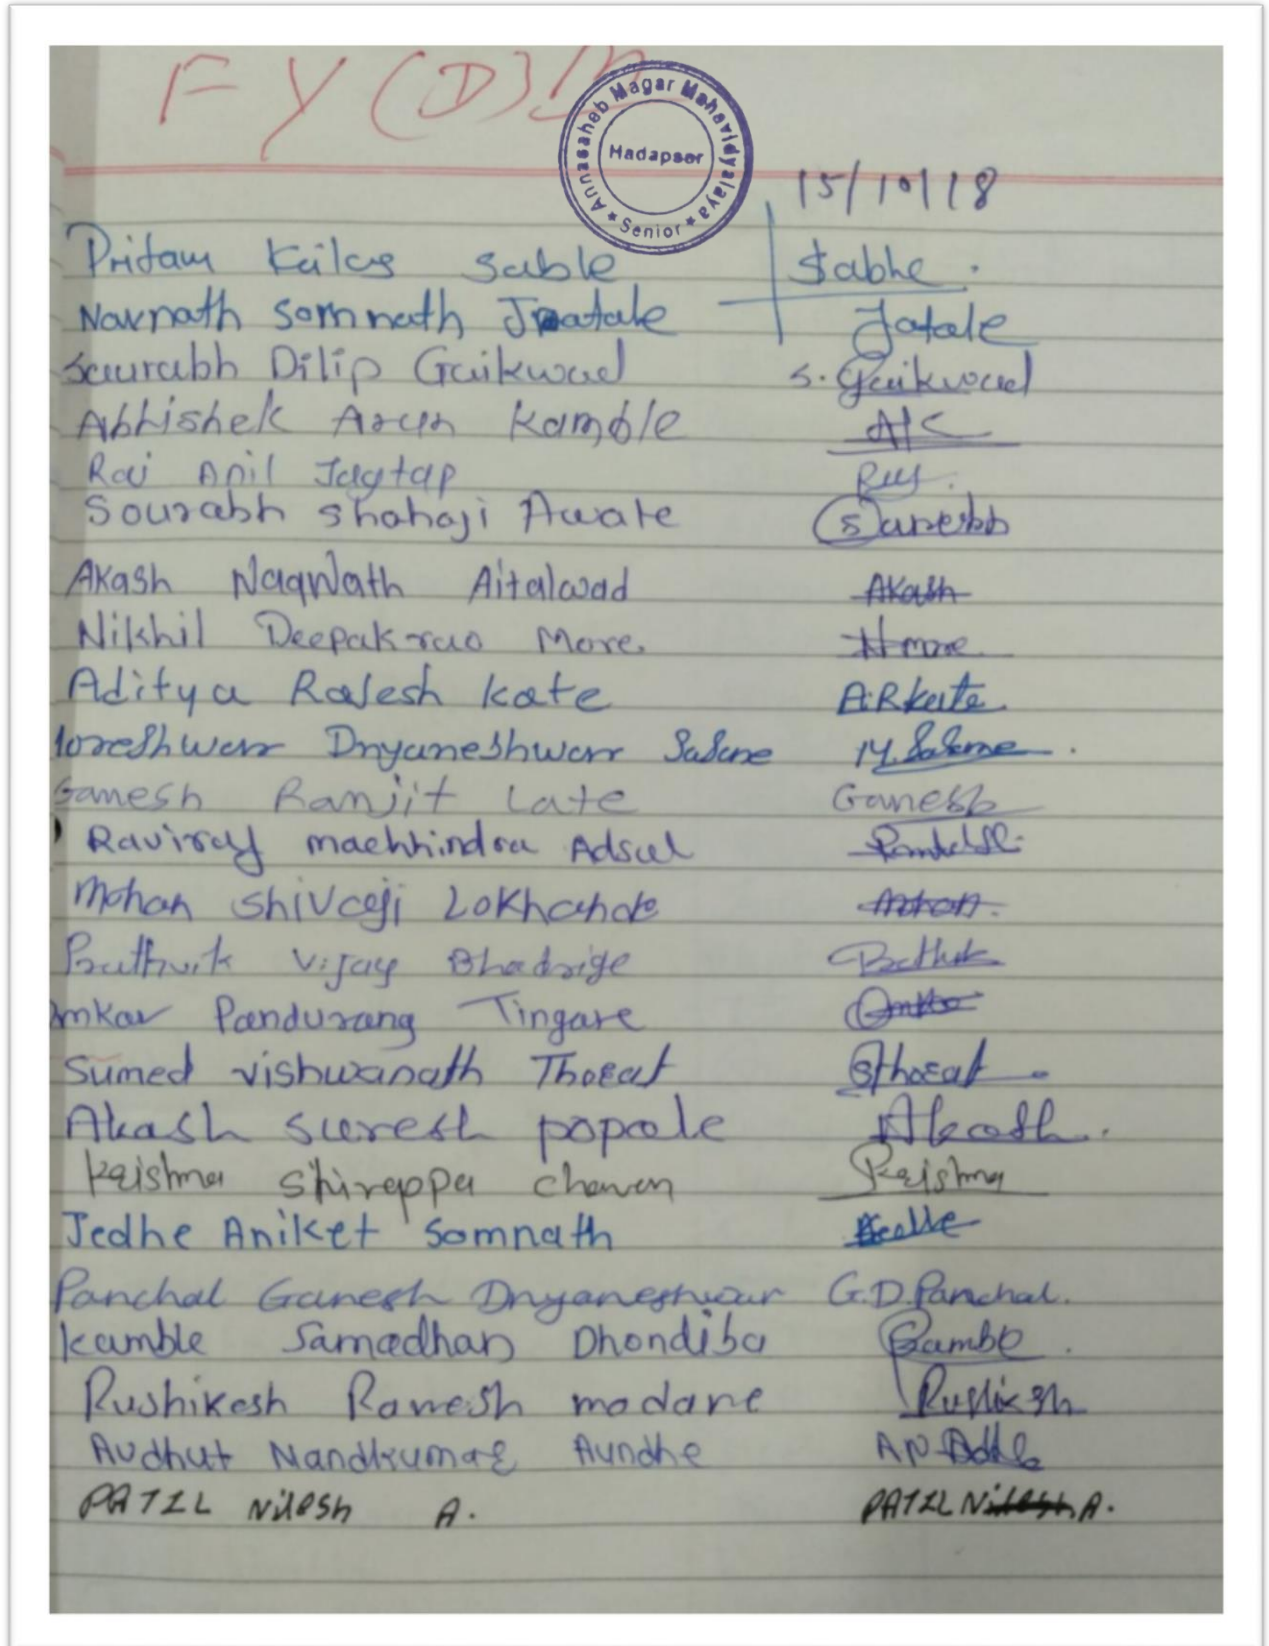 F Y (D)
Annasaheb Magar Mahavidyalaya
Hadapsar
★ Senior ★
15/10/18
Pritam Kailas Sable Sable.
Navnath Somnath Jatale Jatale
Saurabh Dilip Gaikwad S. Gaikwad
Abhishek Arun Kamble
Raj Anil Jagtap Raj.
Sourabh Shahaji Awate
Akash Nagnath Aitalwad Akash
Nikhil Deepakrao More. N more
Aditya Rajesh Kate A.R Kate.
Moreshwar Dnyaneshwar Sasane M. Sasane.
Ganesh Ranjit Late Ganesh
Raviraj machhindra Adsul
Mohan Shivaji Lokhande Mohan.
Pruthvik Vijay Bhadrige
Omkar Pandurang Tingare Omkar
Sumed vishwanath Thorat SThorat.
Akash Suresh popale Akash.
Krishna Shivappa Chavan Krishna
Jedhe Aniket Somnath
Panchal Ganesh Dnyaneshwar G.D. Panchal.
Kamble Samadhan Dhondiba
Rushikesh Ramesh madane
Audhut Nandkumar Aundhe
PATIL Nilesh A. PATIL Nilesh A.